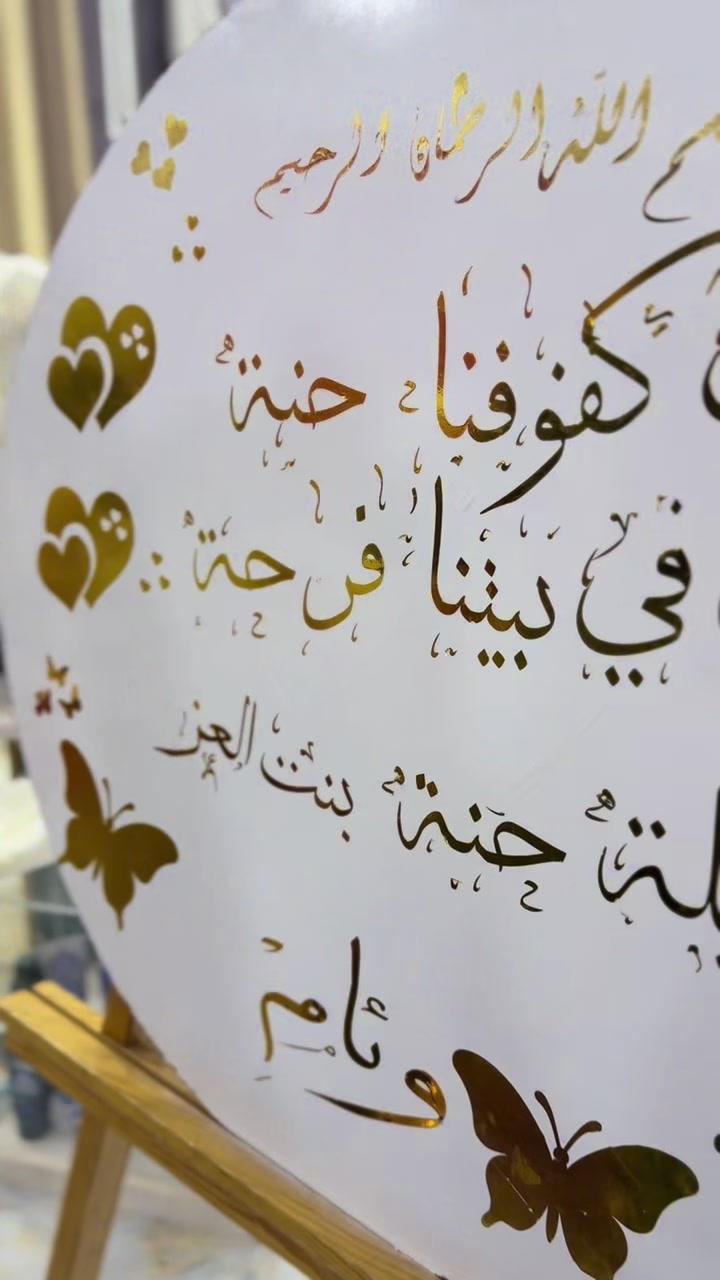 الله الرحمان الرحيم
كفوفنا حنة
في بيتنا فرحة
حنة بنت العز
وئام